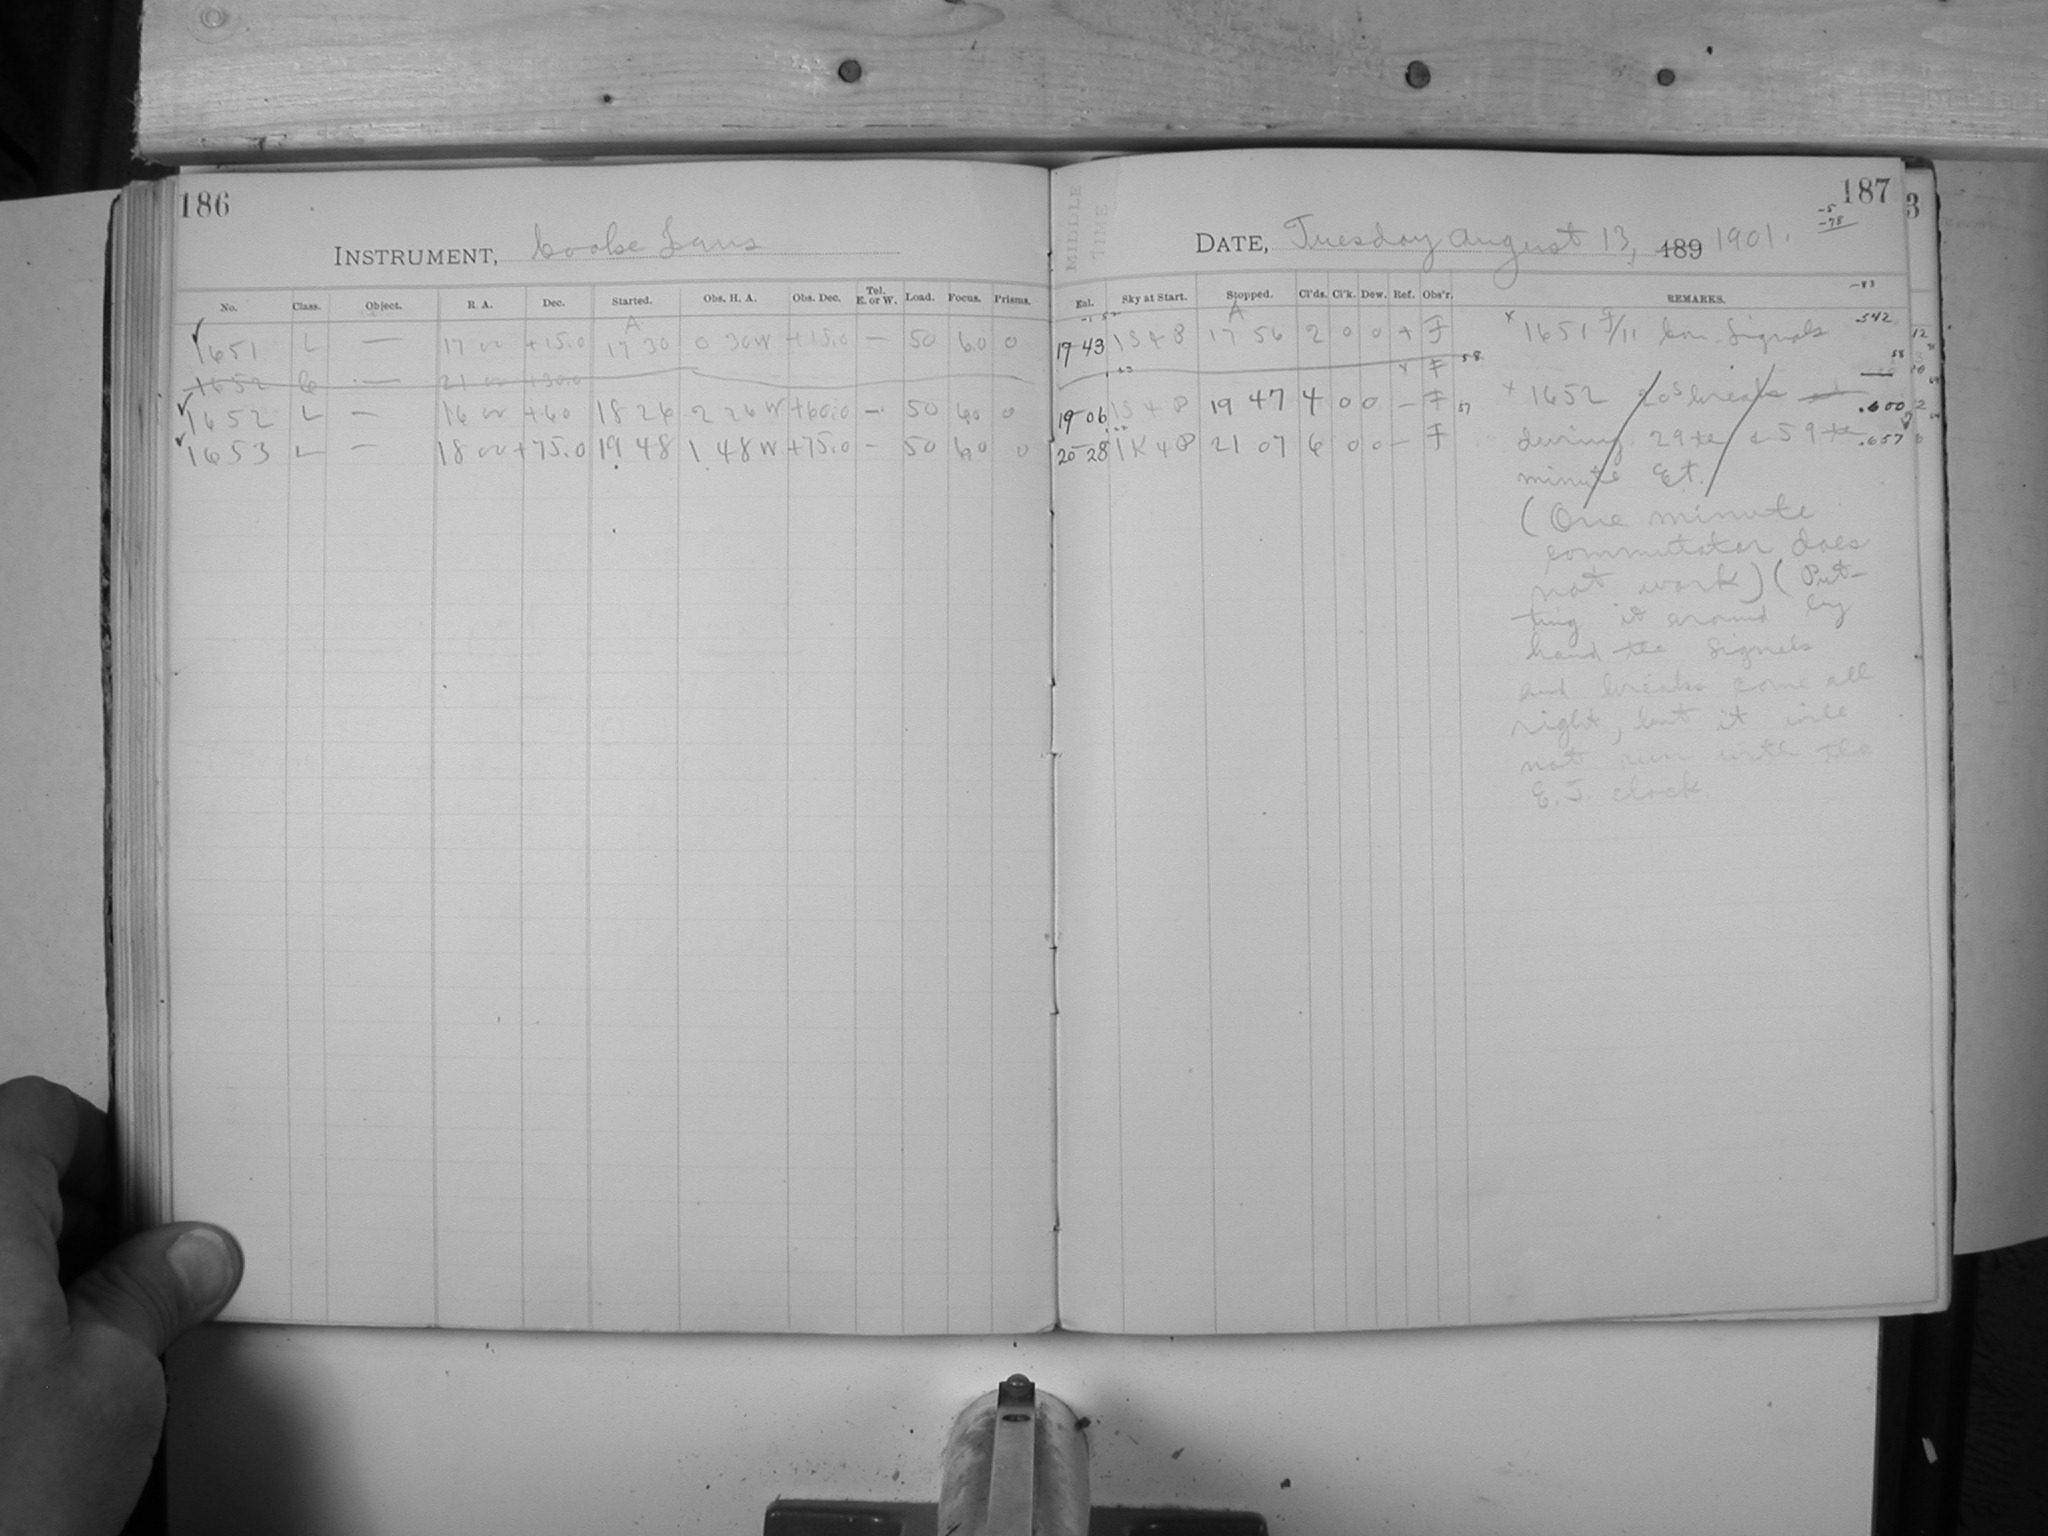 186
INSTRUMENT, Cooke Lens
No. Class. Object. R. A. Dec. Started. Obs. H. A. Obs. Dec. Tel. E. or W. Load. Focus. Prisms.
A
1651 L — 17 00 +15.0 17 30 0 30W +15.0 — 50 6.0 0
1652 C — 21 00 +30.0
1652 L — 16 00 +60 18 26 2 26W +60.0 — 50 6.0 0
1653 L — 18 00 +75.0 19 48 1 48W +75.0 — 50 6.0 0
MIDDLE TIME
187
3
DATE, Tuesday August 13, 189 1901.
-5
-78
-83
Exl. Sky at Start. Stopped. Cl'ds. Cl'k. Dew. Ref. Obs'r. REMARKS.
A
17 43 1S48 17 56 2 0 0 + F
x F 58
19 06 1S48 19 47 4 0 0 — F 57
20 28 1K48 21 07 6 0 0 — F
x 1651 F/11 Con. Signals .542
x 1652 20s breaks .600
during 29th & 59th .657
minute Et.
(One minute
commutator does
not work) (Put-
ting it around by
hand the signals
and breaks come all
right, but it will
not run with the
E.T. clock.